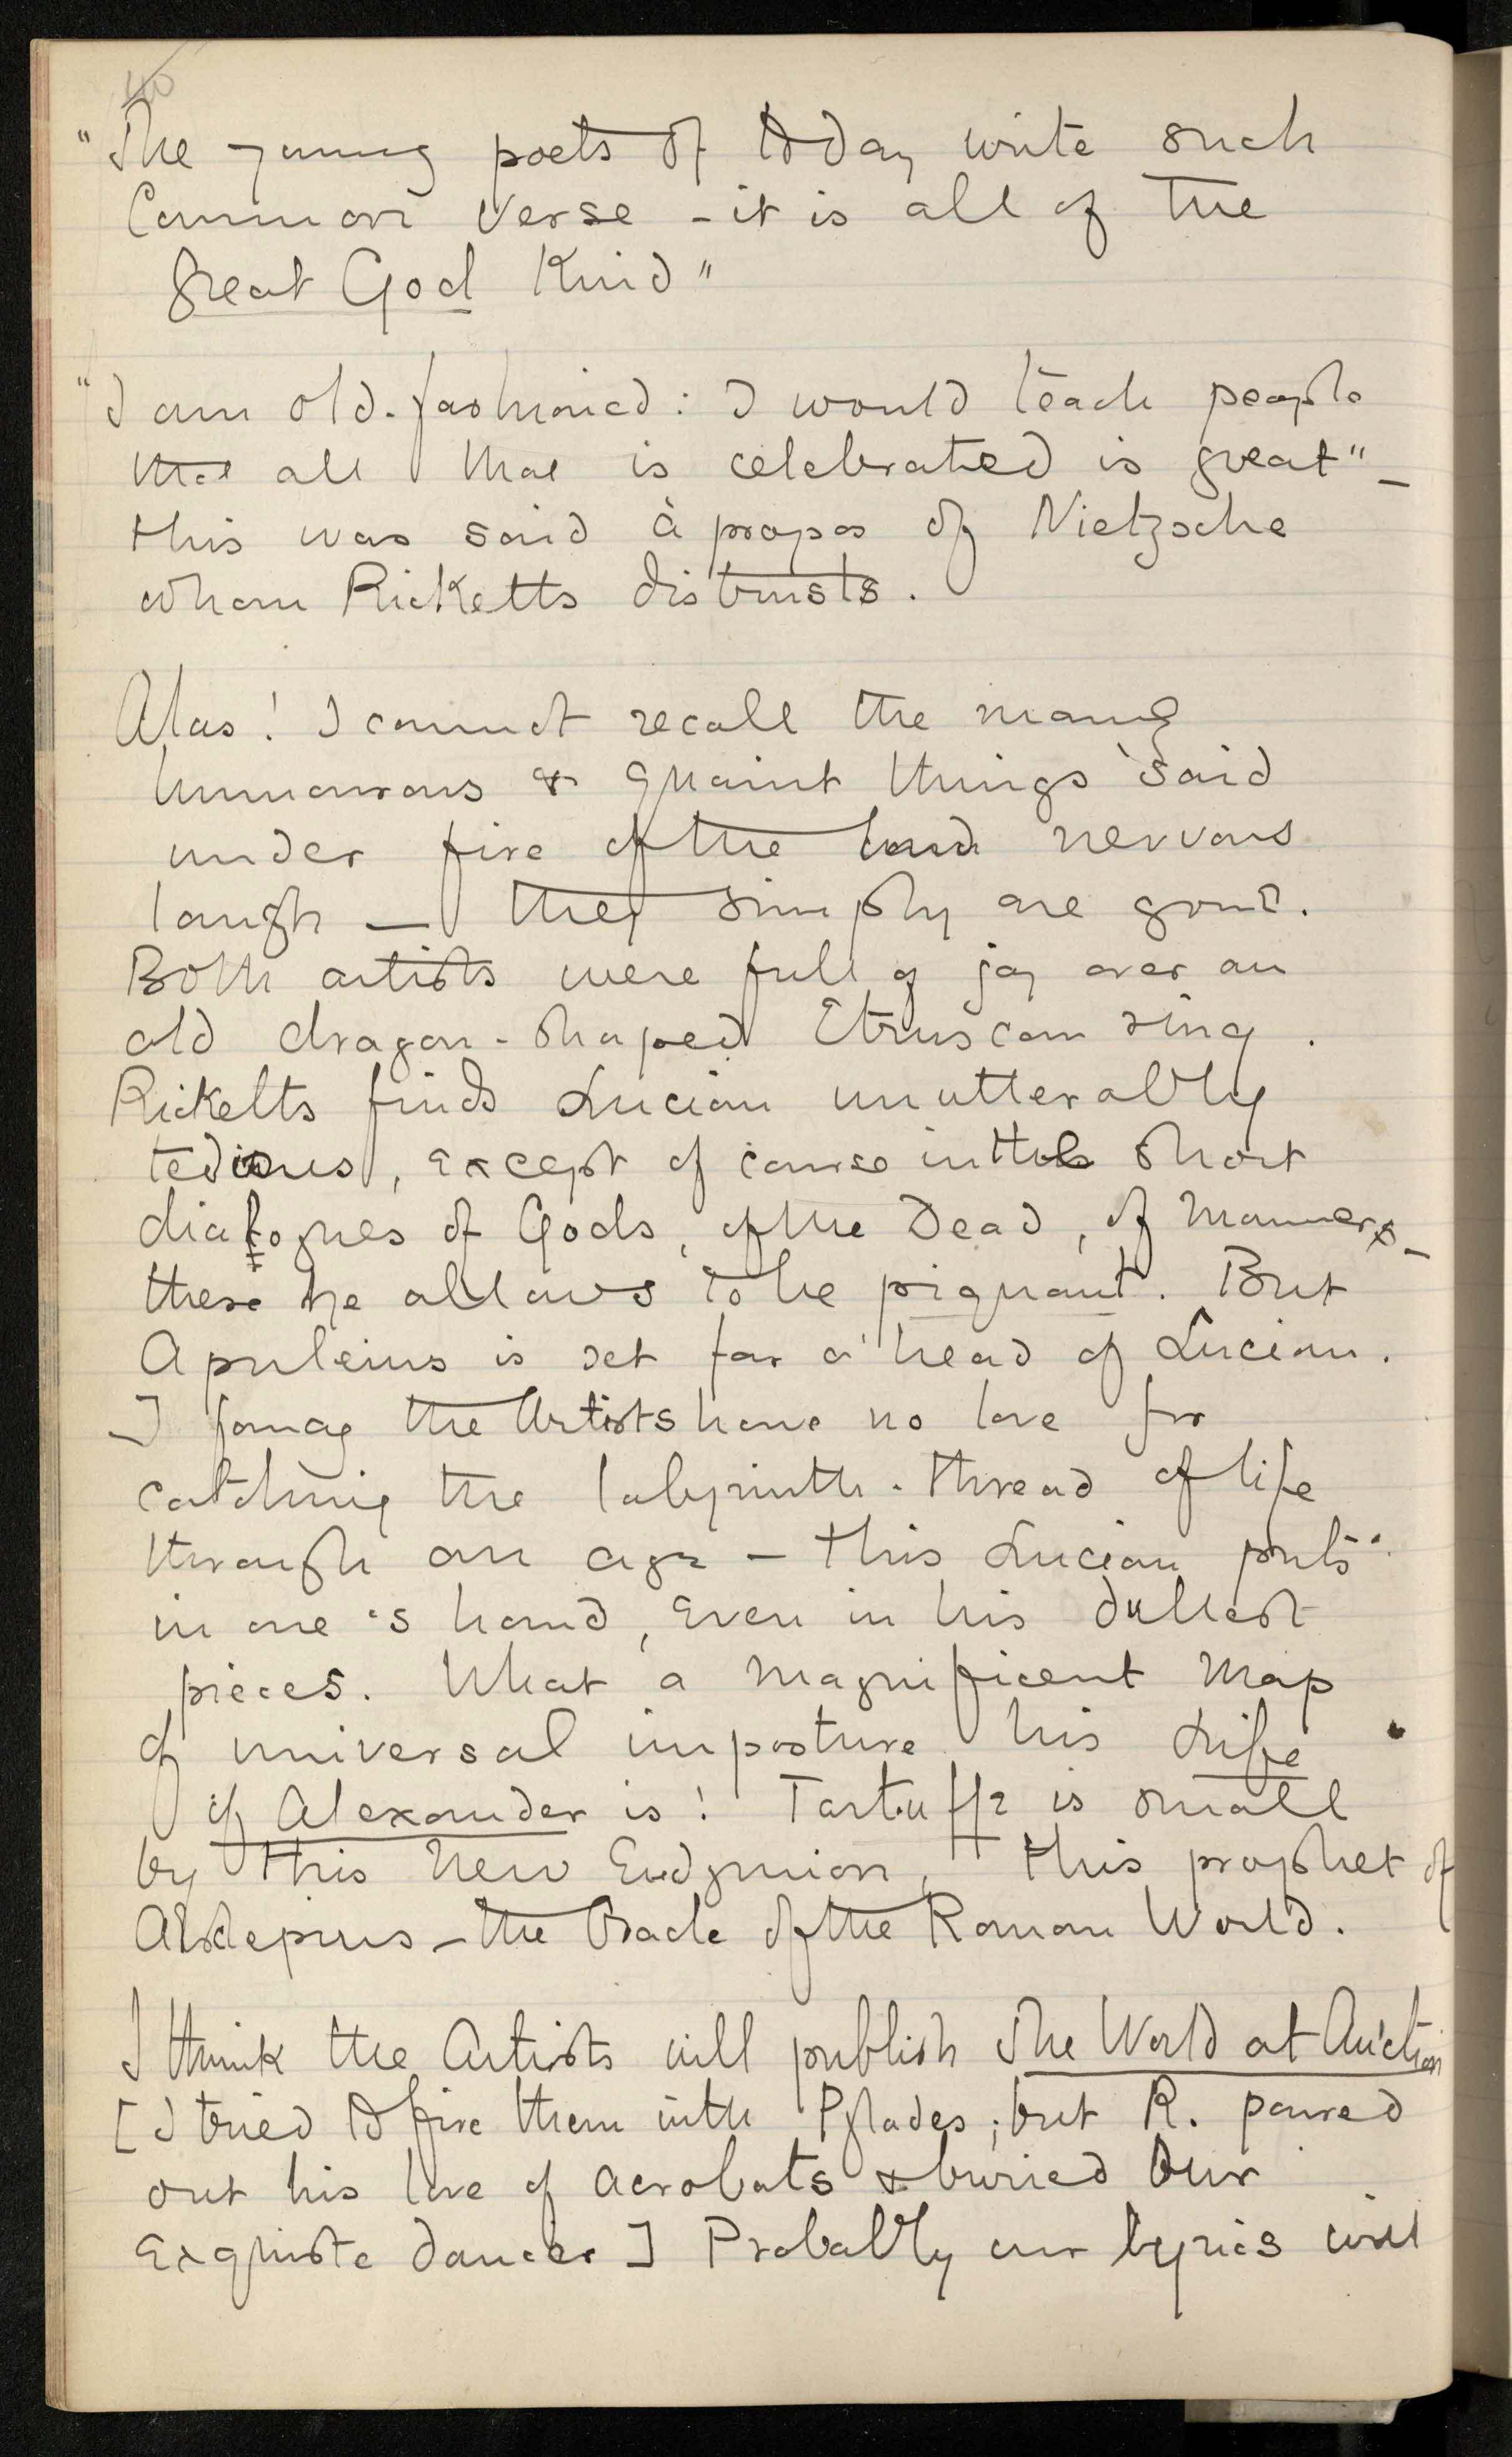 40
"The young poets of today write such
Common Verse - it is all of the
great God Kind"
"I am old-fashioned: I would teach people
that all that is celebrated is great" -
this was said à propos of Nietzsche
whom Ricketts distrusts.
Alas! I cannot recall the many
humourous & quaint things said
under fire of the loud nervous
laugh — they simply are gone.
Both artists were full of joy over an
old dragon-shaped Etruscan ring.
Ricketts finds Lucian unutterably
tedious, except of course in the short
dialogues of Gods, of the Dead, of Manners -
these he allows to be piquant. But
Apuleius is set far a'head of Lucian.
I fancy the Artists have no love for
catching the labyrinth-thread of life
through an age - this Lucian puts
in one's hand, even in his dullest
pieces. What a magnificent Map
of universal imposture his Life
of Alexander is! Tartuffe is small
by this new Endymion, this prophet of
Asklepius - the Oracle of the Roman World.
I think the Artists will publish The World at Auction
[I tried to fire them with Pylades; but R. poured
out his love of acrobats & buried Our
Exquisite dancer] Probably our lyrics will